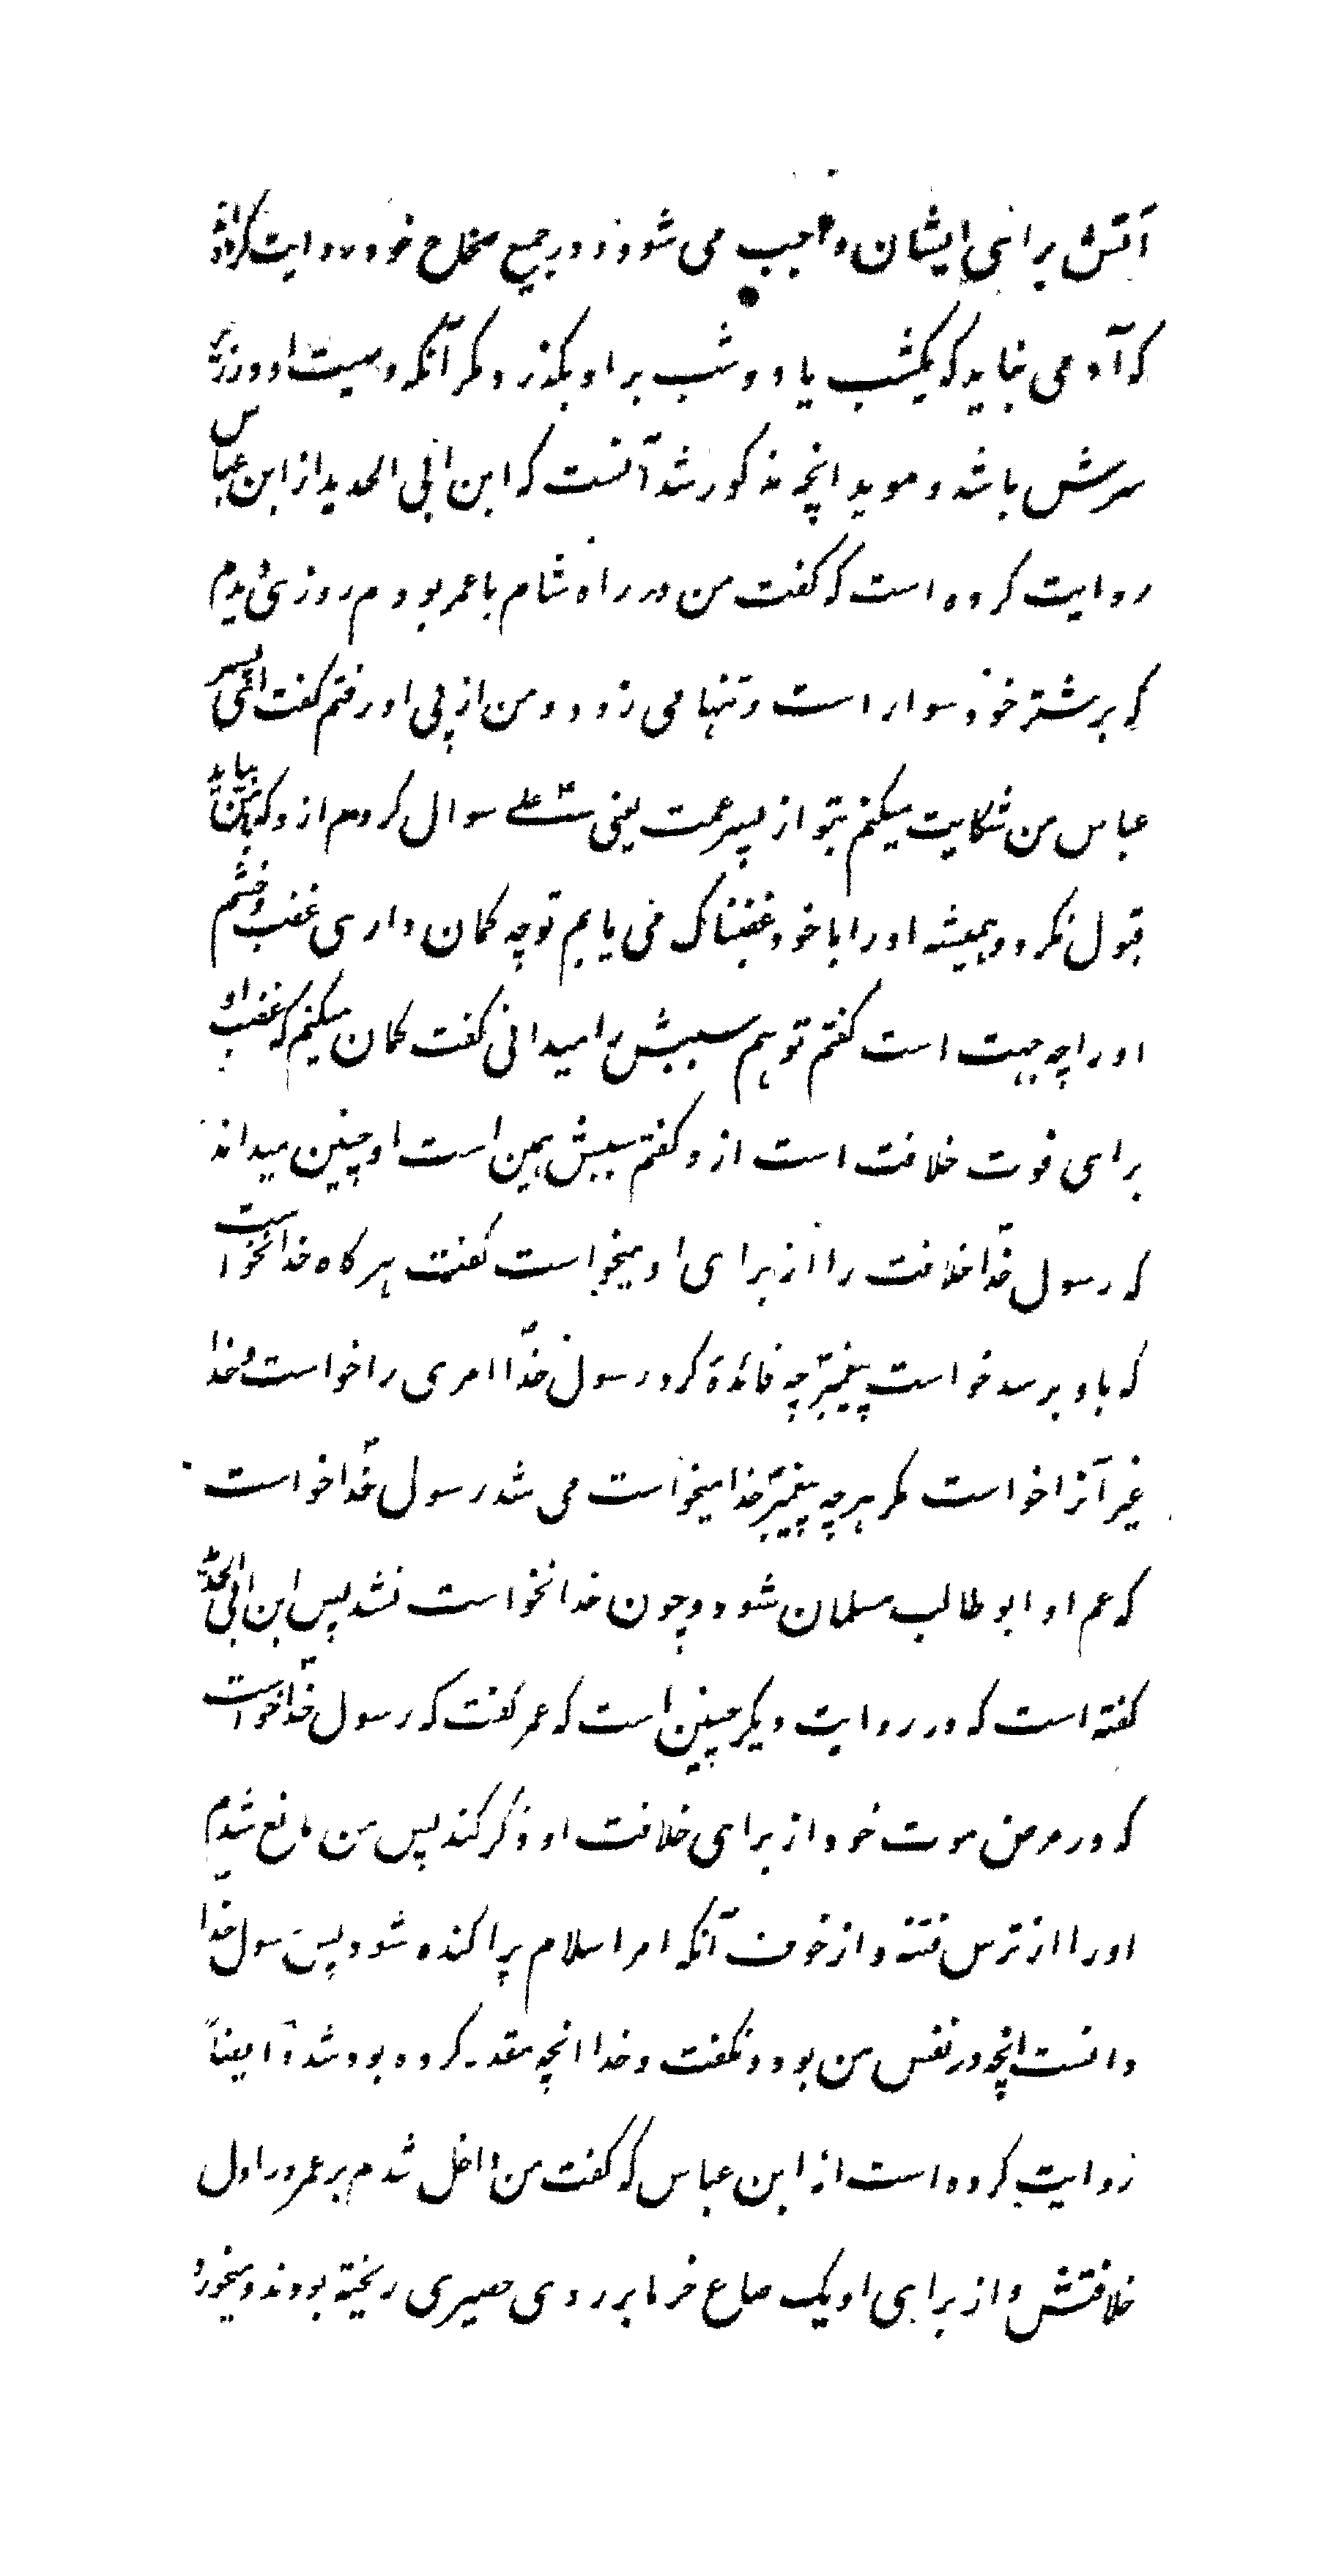 آتش برای ایشان واجب می شود و در جمیع صحاح خود روایت کرده‌اند
که آدمی نباید که یکشب یا دو شب بر او بگذرد مگر آنکه وصیت او در زیر
سرش باشد و موید انچه مذکور شد آنست که ابن ابی الحدید از ابن عباس
روایت کرده است که گفت من در راه شام با عمر بودم روزی دیدم
که بر شتر خود سوار است و تنها می رود و من از پی او رفتم گفت ای پسر
عباس من شکایت میکنم بتو از پسر عمت یعنی علی سوال کردم از و که با من بیاید
قبول نکرد و همیشه او را با خود غضبناک می یابم تو چه گمان داری غضب و خشم
او را چه جهت است گفتم تو هم سببش را میدانی گفت گمان میکنم که غضب او
برای فوت خلافت است از و گفتم سببش همین است او چنین میداند
که رسول خدا خلافت را از برای او میخواست گفت هر گاه خدا نخواست
که باو برسد خواست پیغمبر چه فائدهٔ کرد رسول خدا امری را خواست و خدا
غیر آنرا خواست مگر هر چه پیغمبر خدا میخواست می شد رسول خدا خواست
که عم او ابو طالب مسلمان شود و چون خدا نخواست نشد پس ابن ابی الحدید
گفته است که در روایت دیگر چنین است که عمر گفت که رسول خدا خواست
که در مرض موت خود از برای خلافت او ذکر کند پس من مانع شدم
او را از ترس فتنه و از خوف آنکه امر اسلام پراکنده شود پس رسول خدا
دانست انچه در نفس من بود و نگفت و خدا انچه مقدر کرده بود شد و ایضاً
روایت کرده است از ابن عباس که گفت من داخل شدم بر عمر در اول
خلافتش و از برای او یک صاع خرما بر روی حصیری ریخته بودند و میخورد